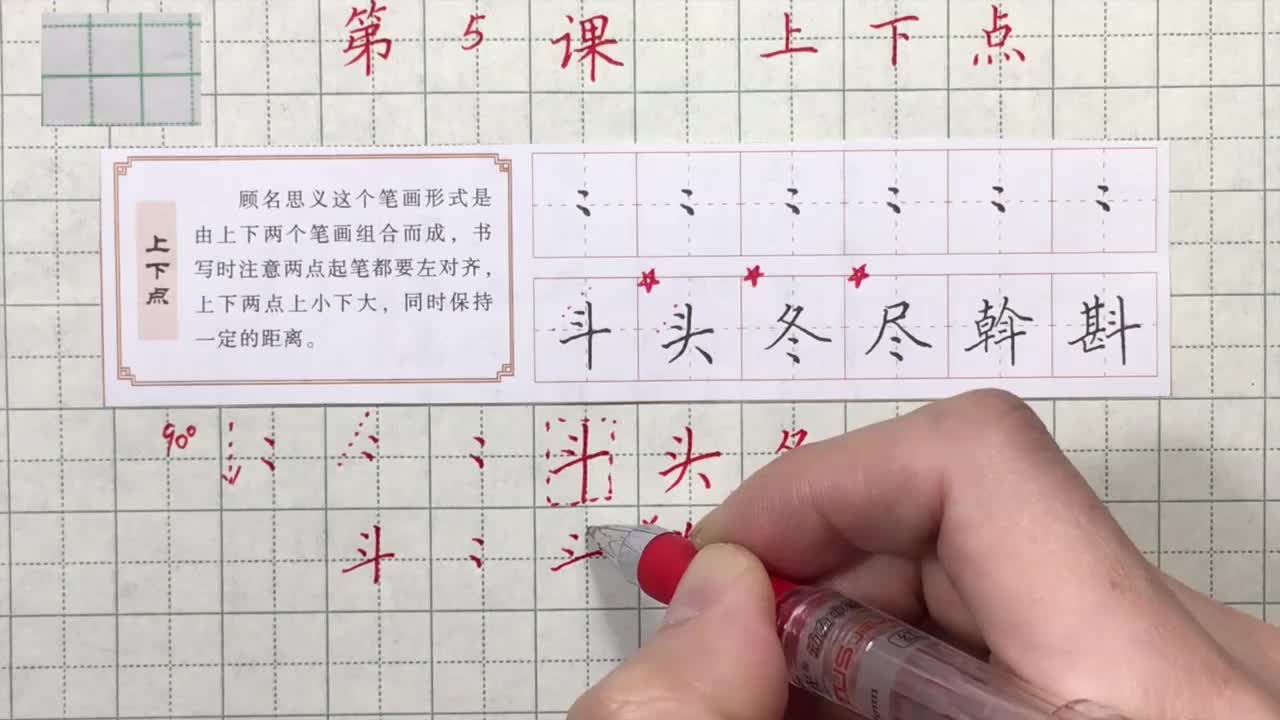 第5课 上下点
上下点
顾名思义这个笔画形式是
由上下两个笔画组合而成，书
写时注意两点起笔都要左对齐，
上下两点上小下大，同时保持
一定的距离。
斗头冬尽斡斟
90° 斗头
斗